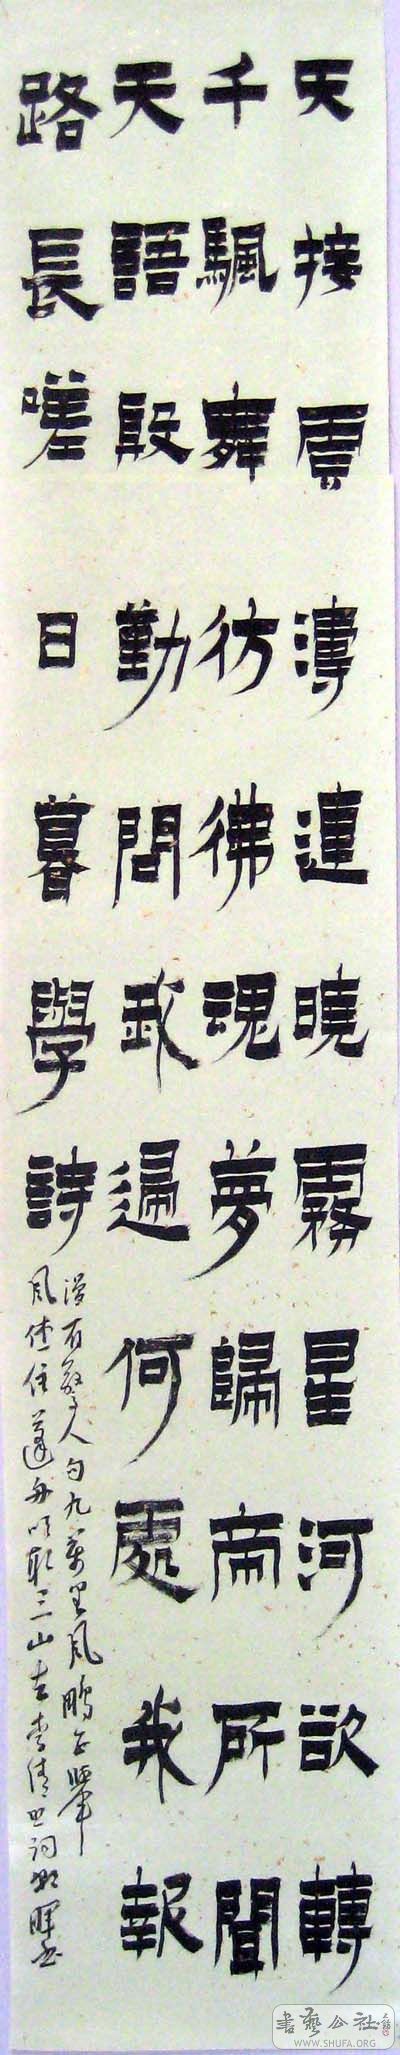 天接雲濤連曉霧星河欲轉
千颿舞彷彿魂夢歸帝所聞
天語殷勤問我歸何處我報
路長嗟日暮學詩
漫有驚人句九萬里風鵬正舉
風休住蓬舟吹取三山去李清照詞暉書
書藝公社
WWW.SHUFA.ORG